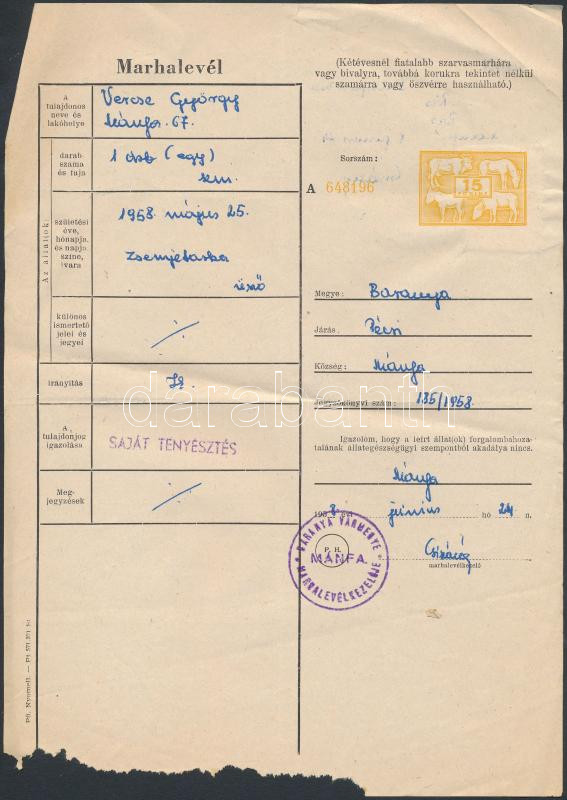 Marhalevél
A
tulajdonos
neve és
lakóhelye
György
Mánfa 67.
Az állat(ok)
darab-
száma
és faja
1 drb (egy)
születési
éve,
hónapja,
és napja,
színe,
ivara
1958 május 25.
zsemjetarka
üsző
különös
ismertető
jelei és
jegyei
irányítás
A
tulajdonjog
igazolása
SAJÁT TENYÉSZTÉS
Meg-
jegyzések
(Kétévesnél fiatalabb szarvasmarhára
vagy bivalyra, továbbá korukra tekintet nélkül
szamárra vagy öszvérre használható.)
Sorszám:
A 648196
15
FORINT
Megye: Baranya
Járás: Pécsi
Község: Mánfa
Jegyzőkönyvi szám: 185/1958.
Igazolom, hogy a leírt állat(ok) forgalombahoza-
talának állategészségügyi szempontból akadálya nincs.
Mánfa
1958. évi június hó 24 n.
P. H.
BARANYA VÁRMEGYE
MÁNFA
MARHALEVÉLKEZELŐJE
marhalevélkezelő
darabanth